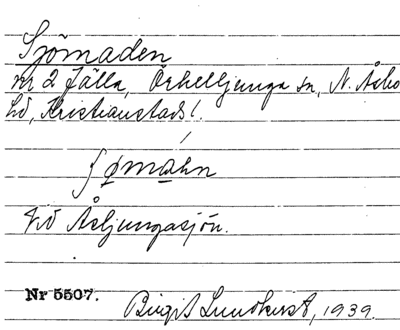 Sjömaden
nr 2 Fälla, Örkelljunga sn, N. Åsbo
hd, Kristianstads l.
ʃømáhn
Vid Åsljungasjön.
Nr 5507. Birgit Lundkvist, 1939.